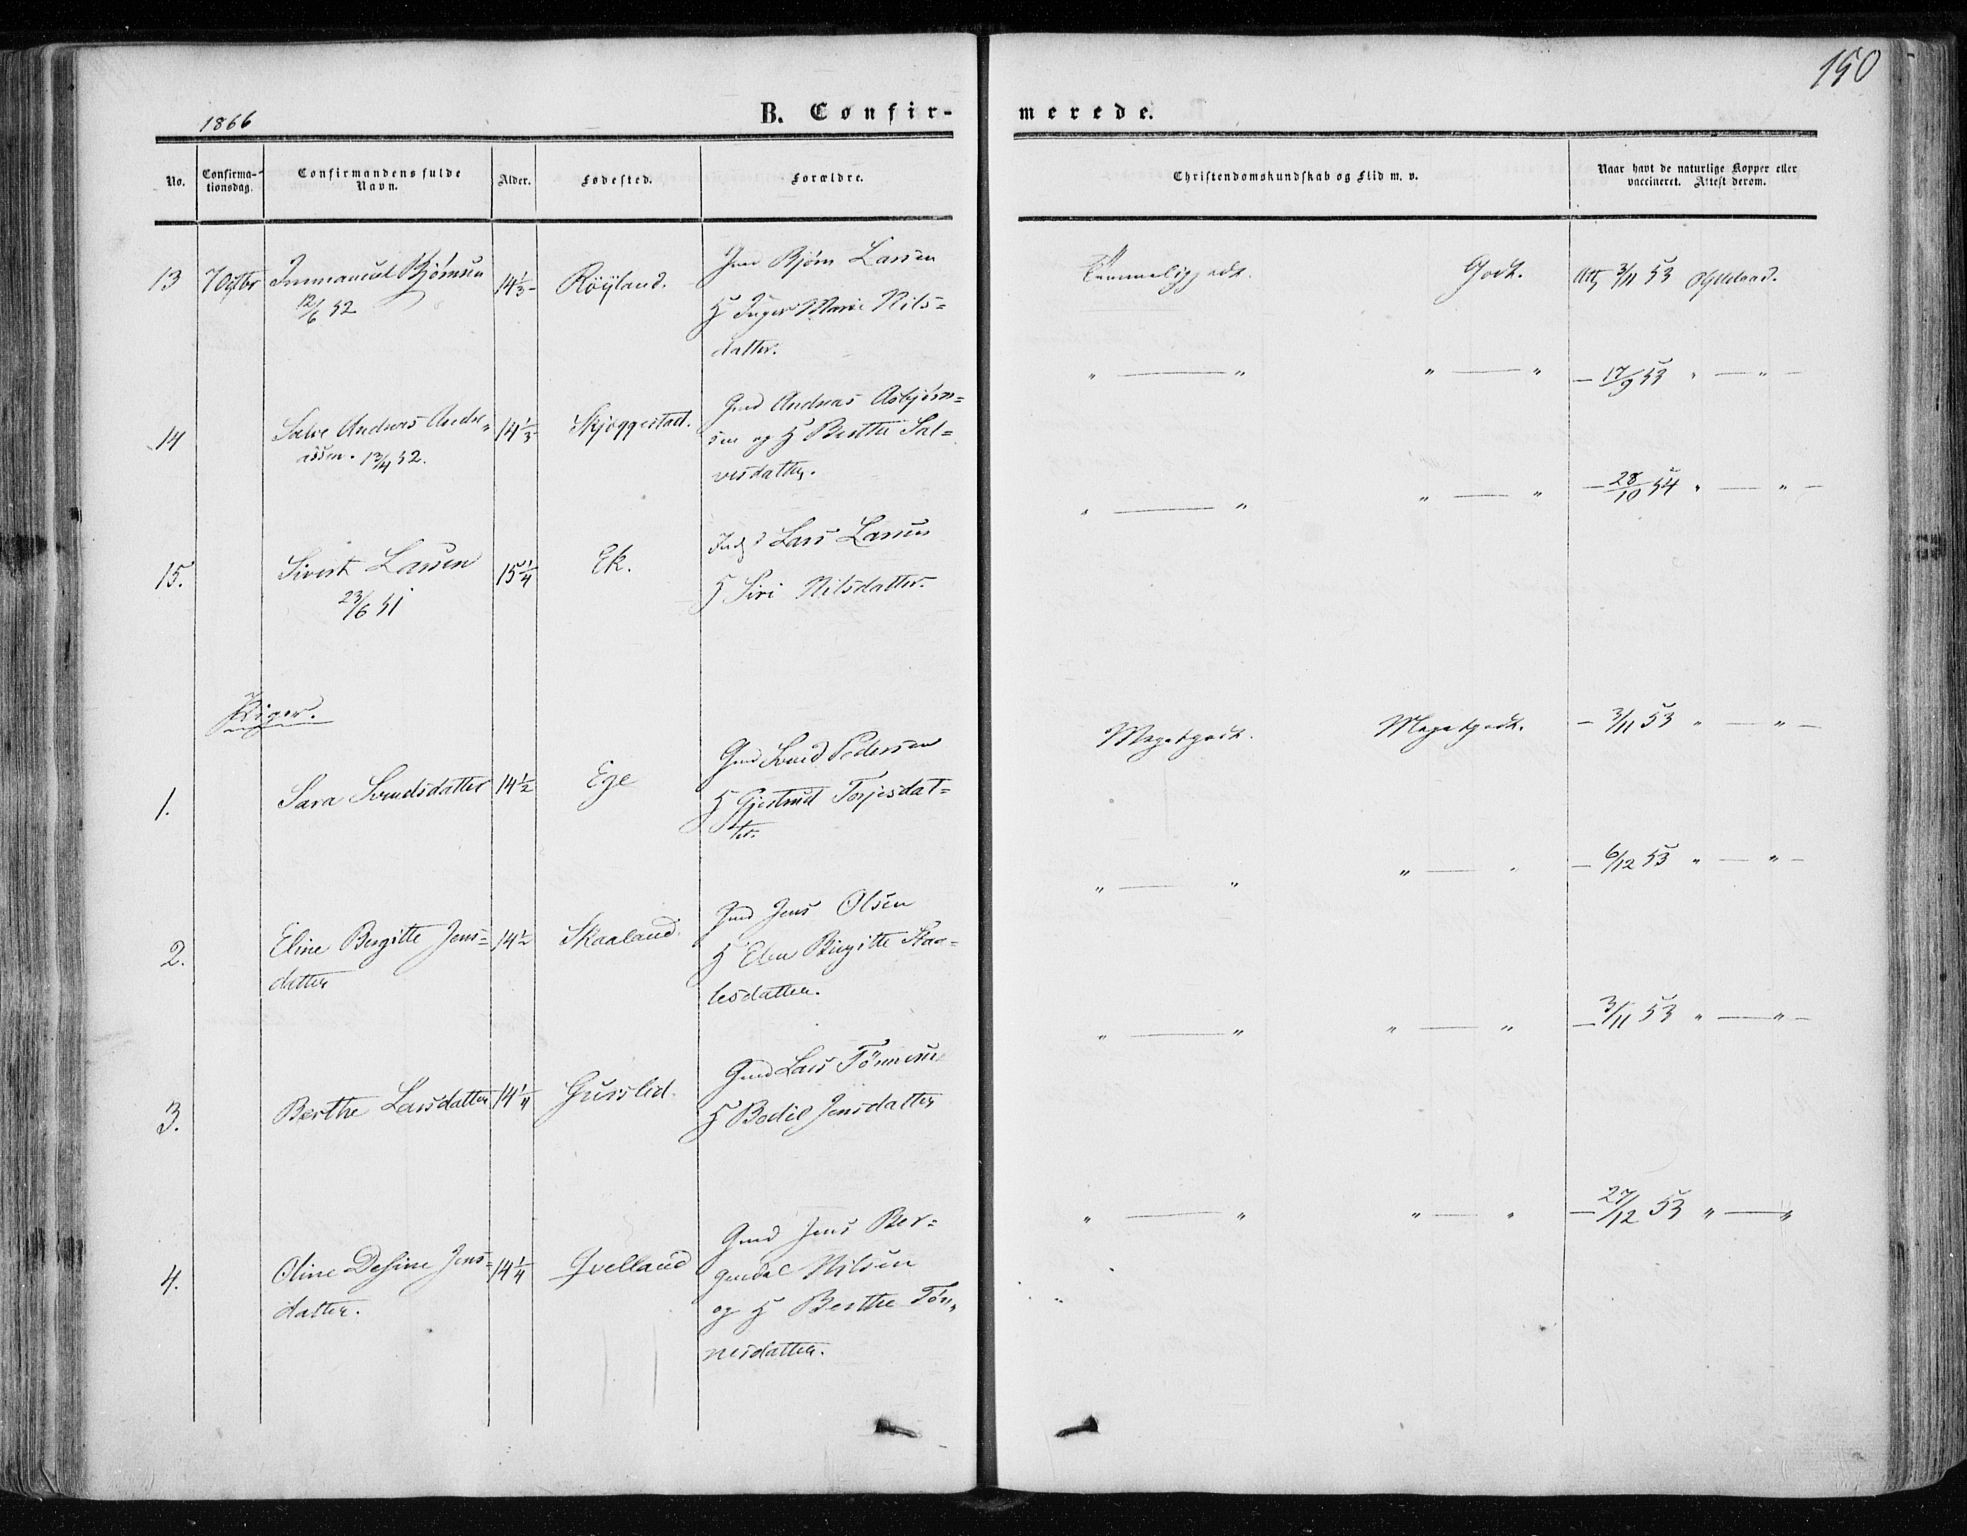 150
1866
B. Confir-
merede.
No.
Confirma-
tionsdag.
Confirmandens fulde
Navn.
Alder.
Fødested.
Forældre.
Christendomskundskab og Flid m. v.
Naar havt de naturlige Kopper eller
vaccineret. Attest derom.
13 7 Octbr Immanuel Bjørnsen 14 1/3 Röyland. Gmd Bjørn Larsen Temmelig godt. Godt. Att 3/11 53
12/6 52 H Inger Marie Nils=
datter.
" — " " — " — 17/9 53 " — " —
14 Salve Andreas Andre= 14 1/3 Skjeggestad. Gmd Andreas Asbjørn=
assen. 13/4 52. sen og H Berthe Sal=
vesdatter.
" — " " — " — 28/10 54 " — " —
15. Sivert Larsen 15 1/4 Ek. Lars Larsen
23/6 51 H Siri Nilsdatter.
Piger.
1. Sara Svendsdatter 14 1/2 Ege Gmd Svend Pedersen Meget godt. Meget godt. — 3/11 53 " — " —
H Gjertrud Torjesdat=
ter.
" — " " — " — 6/12 53 " — " —
2. Eline Birgitte Jens= 14 1/2 Skaaland. Gmd Jens Olsen
datter H Elen Birgitte Staa=
lesdatter.
" — " " — " — 3/11 53 " — " —
3. Berthe Larsdatter 14 1/4 Gursslid. Gmd Lars Tønnesen
H Bodil Jensdatter
" — " " — " — 27/12 53 " — "
4. Oline Desine Jens= 14 1/4 Qvelland Gmd Jens Ber=
datter. gendal Nilsen
og H Berthe Tøn=
nesdatter.